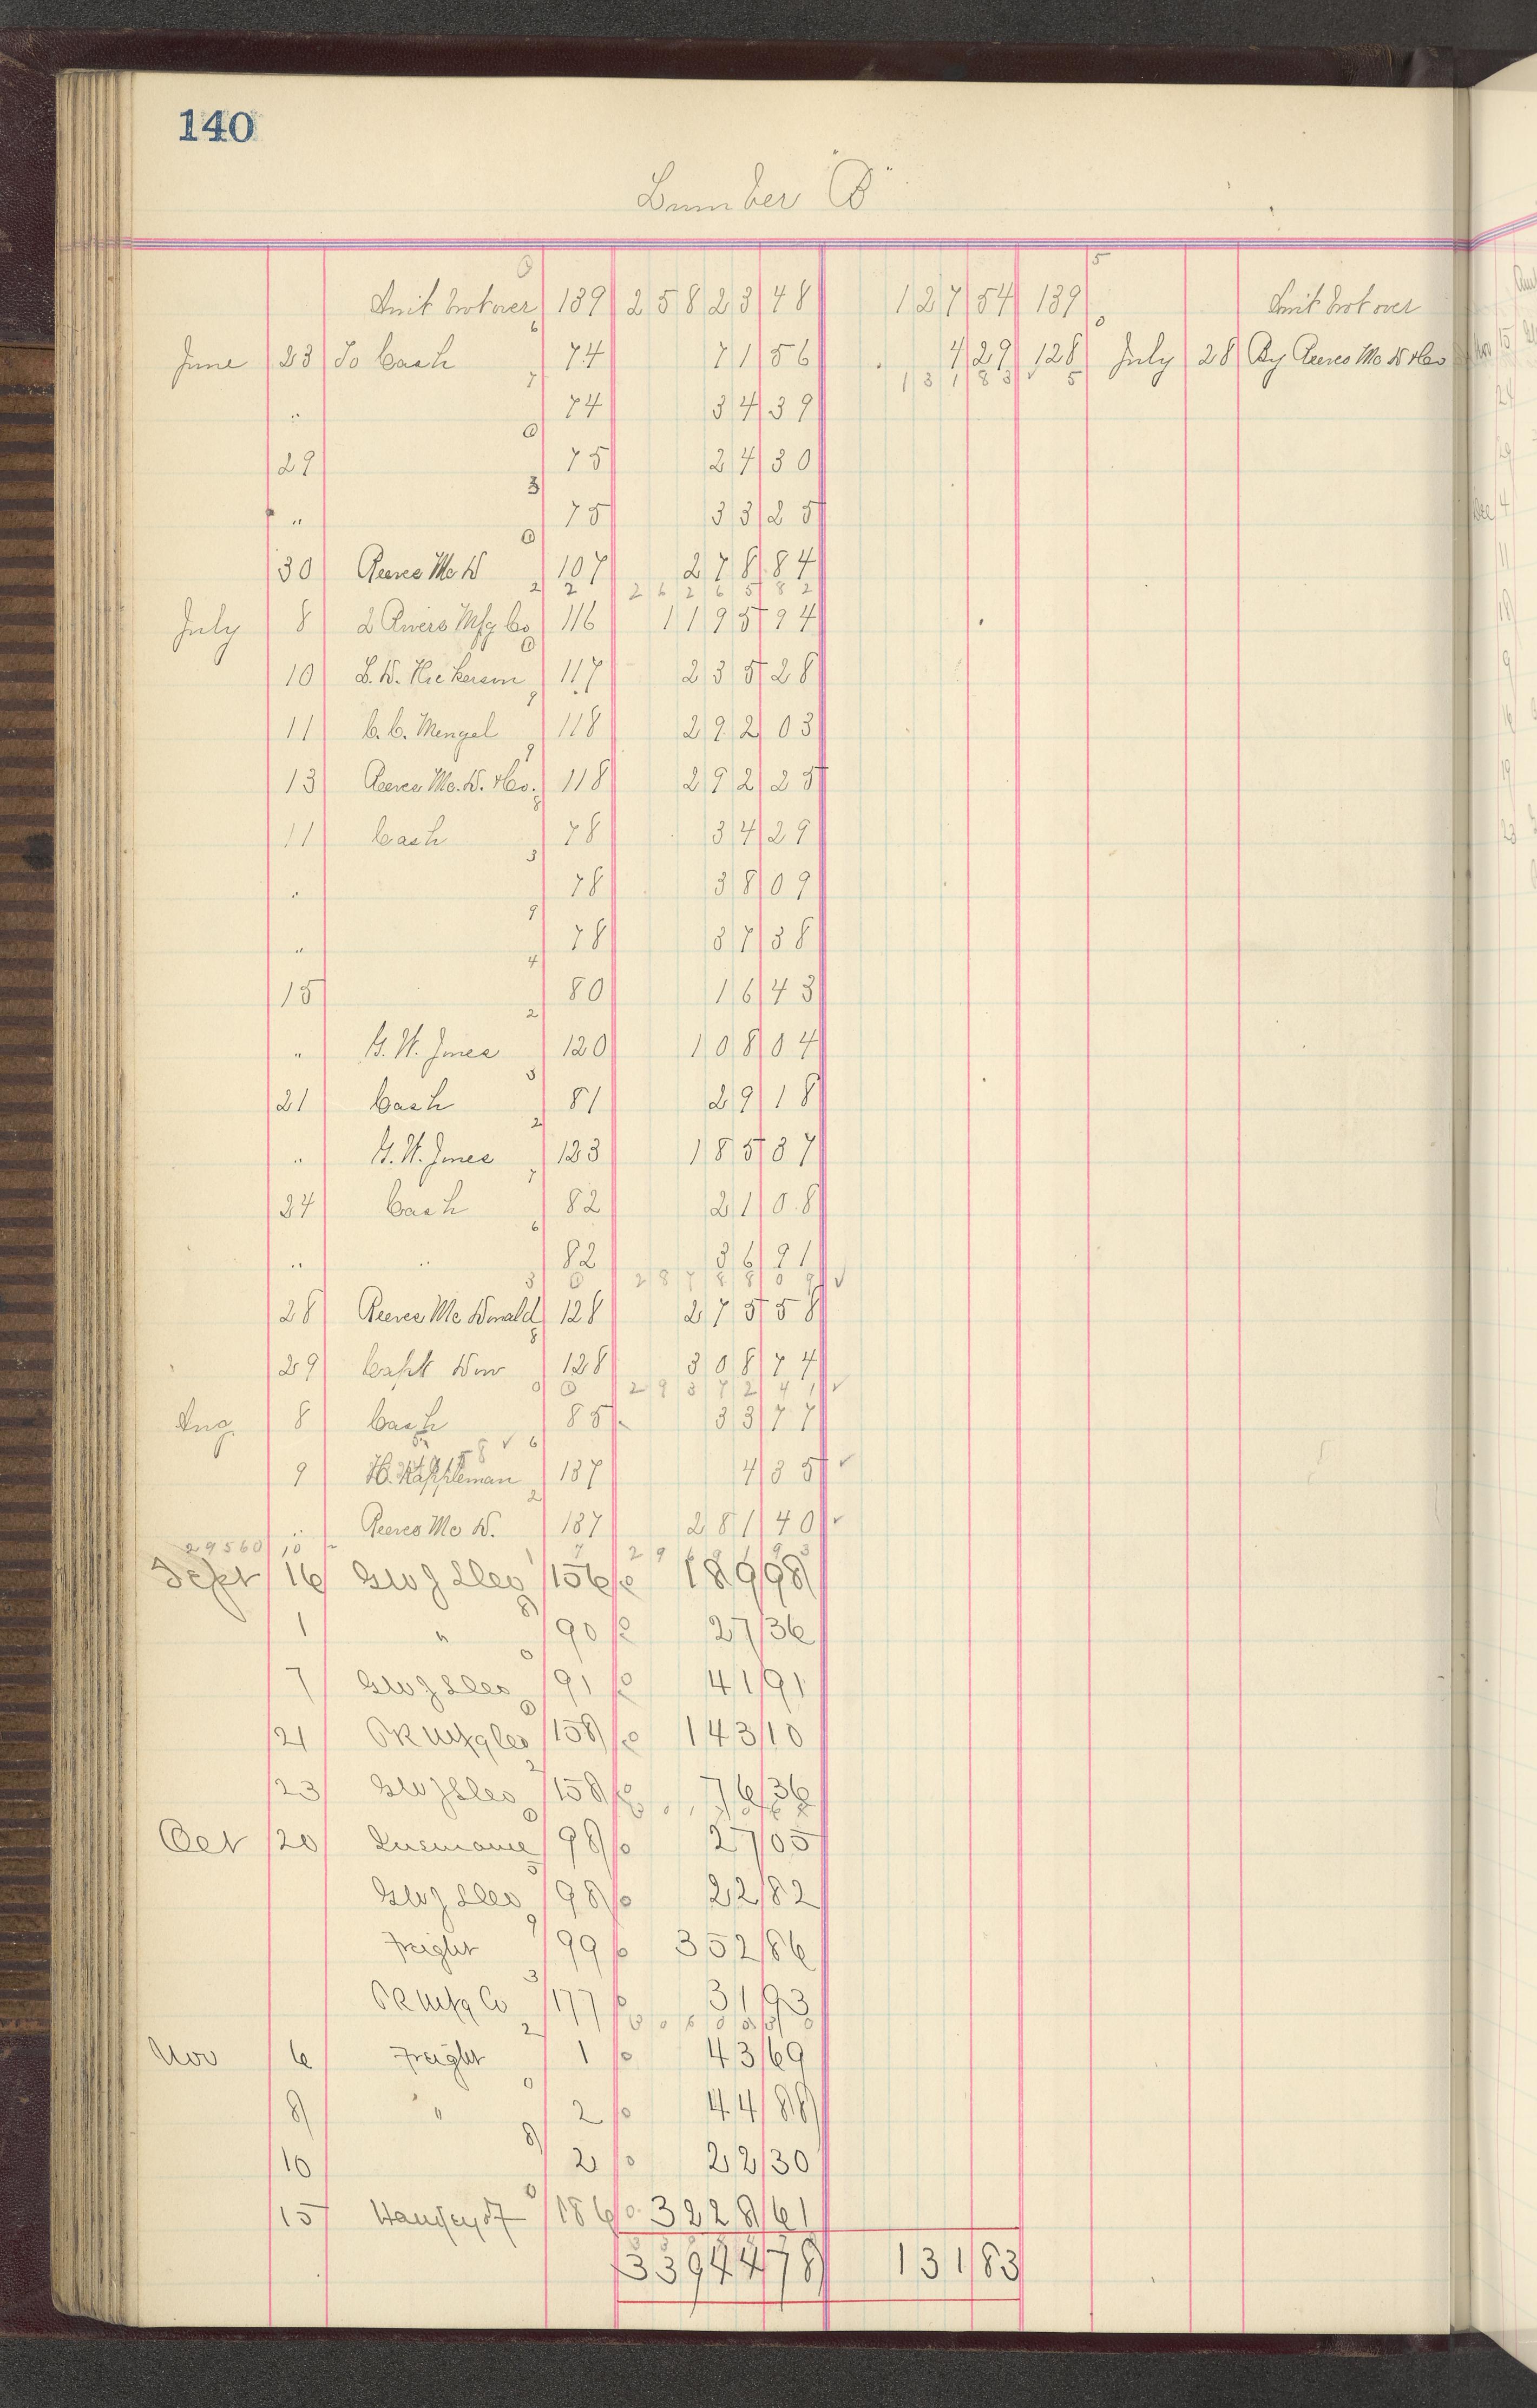 140
Lumber "B"
Amt brot over 139 25823 48 127 54 139 Amt brot over
June 23 To Cash 74 71 56 4 29 128 July 28 By Reeves Mc D & Co
131 83
" 74 34 39
29 75 24 30
" 75 33 25
30 Reeves Mc D 107 278 84
26265 82
July 8 2 Rivers Mfg Co 116 1195 94
10 L. D. Hickerson 117 235 28
11 C. C. Mengel 118 292 03
13 Reeves Mc. D. & Co. 118 292 25
11 Cash 78 34 29
" 78 38 09
" 78 37 38
15 80 16 43
" G. W. Jones 120 108 04
21 Cash 81 29 18
" G. W. Jones 123 185 37
24 Cash 82 21 08
" " 82 36 91
28788 09
28 Reeves Mc Donald 128 275 58
29 Capt Dow 128 308 74
29372 41
Aug. 8 Cash 85 33 77
9 H. Kappleman 137 4 35
" Reeves Mc D. 137 281 40
29560 10 29691 93
Sept 16 156 189 98
1 " 90 27 36
7 91 41 91
21 158 143 10
23 158 76 36
Oct 20 98 27 05
98 22 82
Freight 99 352 86
Mfg Co 177 31 93
Nov 6 Freight 1 43 69
8 " 2 44 88
10 2 22 30
15 186 3228 61
33944 78 131 83